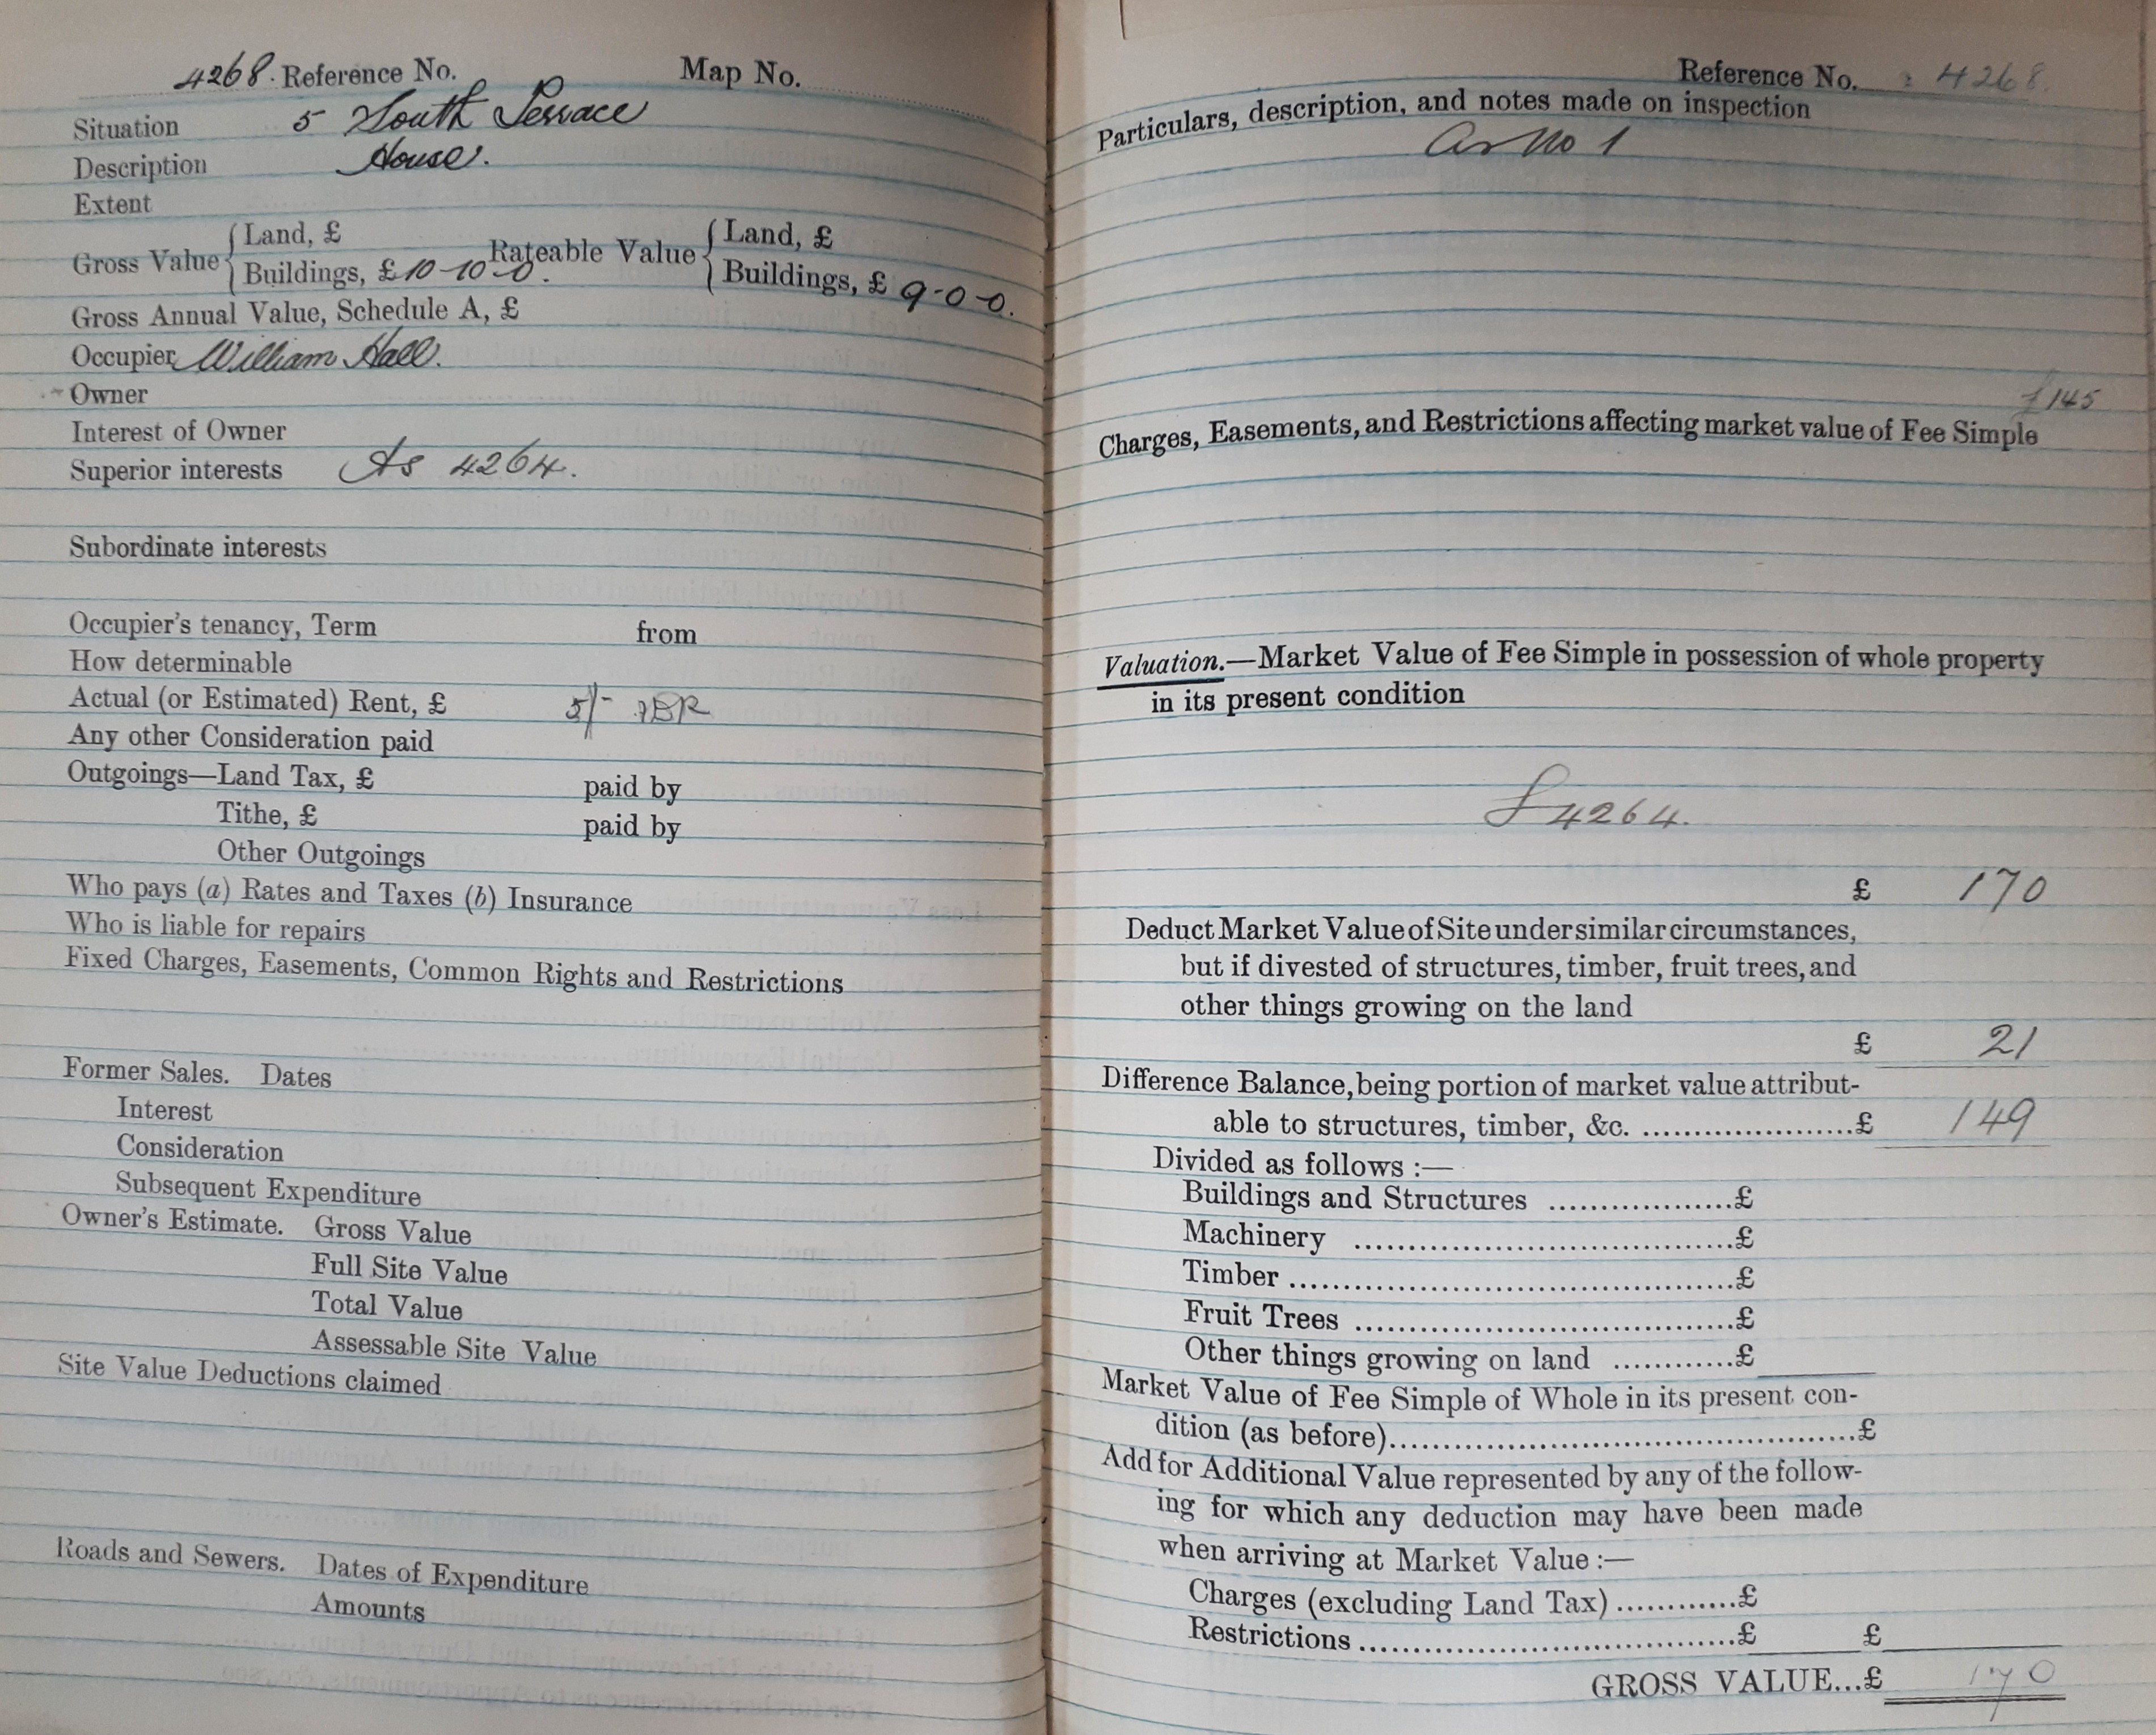 4268. Reference No. Map No.
Situation 5 South Terrace
Description House.
Extent
Gross Value { Land, £ Rateable Value { Land, £
Buildings, £ 10-10-0. Buildings, £ 9-0-0.
Gross Annual Value, Schedule A, £
Occupier William Hall.
Owner
Interest of Owner
Superior interests As 4264.
Subordinate interests
Occupier's tenancy, Term from
How determinable
Actual (or Estimated) Rent, £ 5/-
Any other Consideration paid
Outgoings—Land Tax, £ paid by
Tithe, £ paid by
Other Outgoings
Who pays (a) Rates and Taxes (b) Insurance
Who is liable for repairs
Fixed Charges, Easements, Common Rights and Restrictions
Former Sales. Dates
Interest
Consideration
Subsequent Expenditure
Owner's Estimate. Gross Value
Full Site Value
Total Value
Assessable Site Value
Site Value Deductions claimed
Roads and Sewers. Dates of Expenditure
Amounts
Reference No. 4268.
Particulars, description, and notes made on inspection
as no 1
£145
Charges, Easements, and Restrictions affecting market value of Fee Simple
Valuation.—Market Value of Fee Simple in possession of whole property
in its present condition
4264.
£ 170
Deduct Market Value of Site under similar circumstances,
but if divested of structures, timber, fruit trees, and
other things growing on the land
£ 21
Difference Balance, being portion of market value attribut-
able to structures, timber, &c. ......................£ 149
Divided as follows :—
Buildings and Structures ...................£
Machinery ......................................£
Timber .............................................£
Fruit Trees ......................................£
Other things growing on land ............£
Market Value of Fee Simple of Whole in its present con-
dition (as before)...............................................£
Add for Additional Value represented by any of the follow-
ing for which any deduction may have been made
when arriving at Market Value :—
Charges (excluding Land Tax) ............£
Restrictions ......................................£ £
GROSS VALUE...£ 170